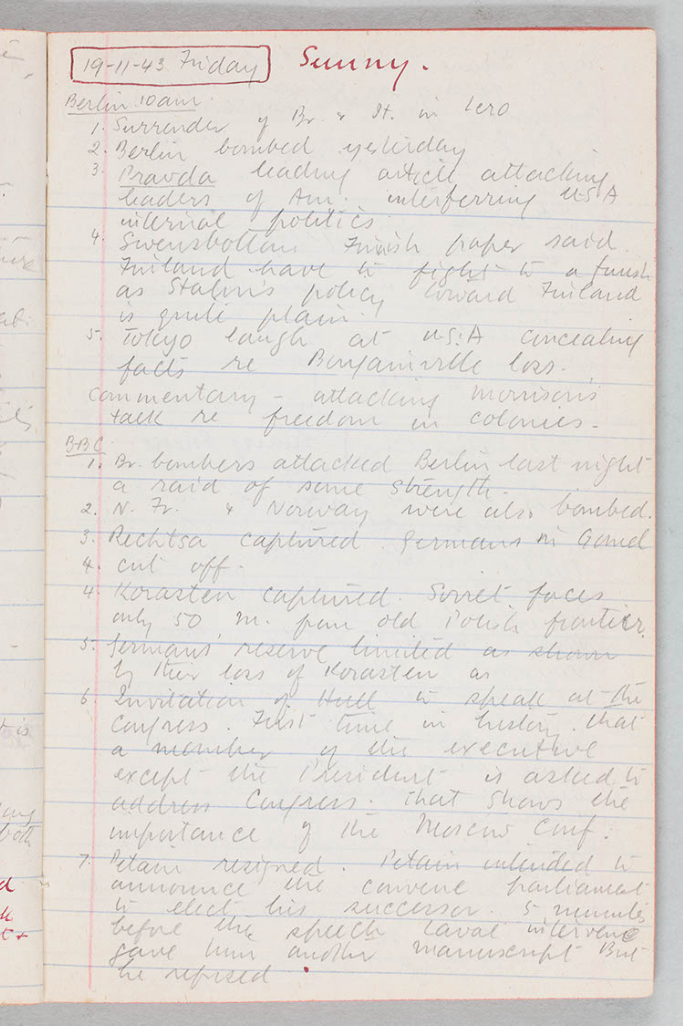 19-11-43 Friday Sunny.
Berlin 10am
1. Surrender of Br. & It. in Lero
2. Berlin bombed yesterday
3. Pravda leading article attacking
leaders of Am. interferring U.S.A
internal politics.
4. Finish paper said
Finland have to fight to a finish
as Stalin's policy toward Finland
is quite plain.
5. Tokyo laugh at U.S.A concealing
facts re Bougainville loss.
Commentary - attacking Morrison's
talk re freedom in colonies.
BBC
1. Br. bombers attacked Berlin last night
a raid of some strength.
2. N. Fr. & Norway were also bombed.
3. Rechtsa captured. Germans in Gomel
4. cut off.
4. Korosten captured. Soviet forces
only 50 m. from old Polish frontier.
5. Germans' reserve limited as shown
by their loss of Korosten as
6. Invitation of Hull to speak at the
Congress. First time in history that
a member of the executive
except the President is asked to
address Congress. That shows the
importance of the Moscow Conf.
7. Petain resigned. Petain intended to
announce the convene parliament
to elect his successor. 5 minutes
before the speech Laval intervene
gave him another manuscript But
he refused.